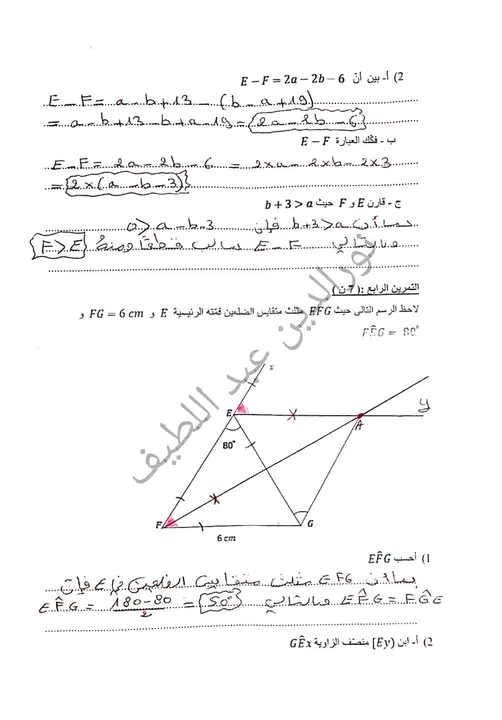 2) أ- بين أنّ E − F = 2a − 2b − 6
E − F = a − b + 13 − (b − a + 19)
= a − b + 13 − b + a − 19 = 2a − 2b − 6
ب - فكّك العبارة E − F
E − F = 2a − 2b − 6 = 2×a − 2×b − 2×3
= 2×(a − b − 3)
ج - قارن E و F حيث b + 3 > a
بما أنّ b+3>a فإن a − b − 3
وبالتالي E − F سالب قطعا ومنه F > E
التمرين الرابع : (7 ن)
لاحظ الرسم التالي حيث EFG مثلث متقايس الضلعين قمّته الرئيسية E و FG = 6 cm و
FÊG = 80°
x
E
A
y
80°
F
G
6 cm
1) أحسب EF̂G
بما أنّ EFG مثلث متقايس الضلعين في E فإن
EF̂G = FĜE وبالتالي EF̂G = 180−80/2 = 50°
2) أ- ابن [Ey) منصّف الزاوية GÊx
نور الدين عبد اللطيف